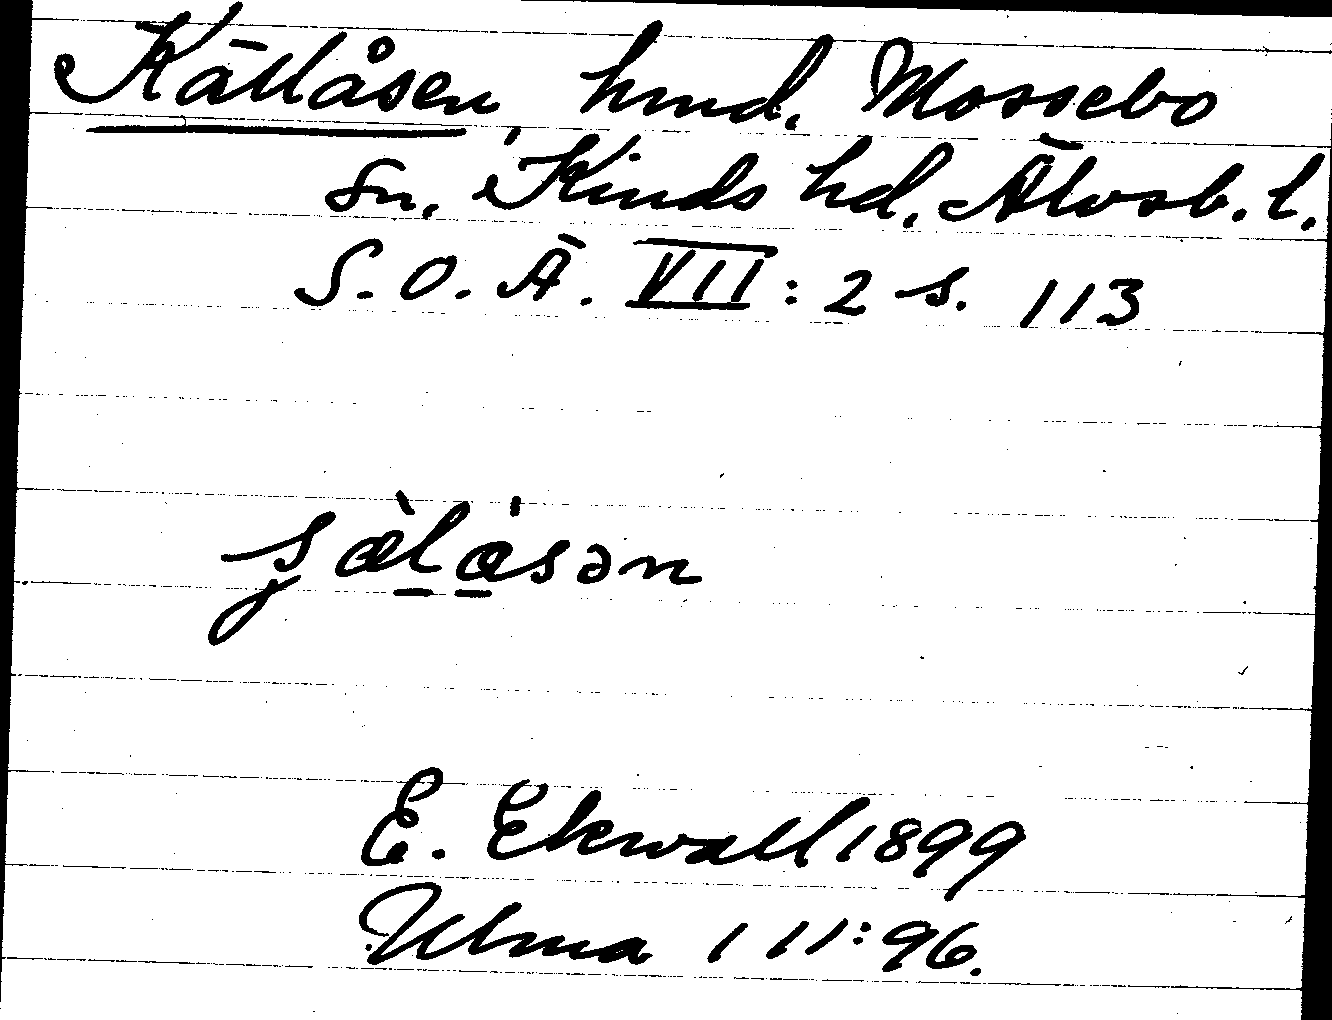 Källåsen, hmd. Mossebo
sn, Kinds hd. Älvsb. l.
S. O. Ä. VII : 2 s. 113
E. Ekwall 1899
Ulma 111:96.